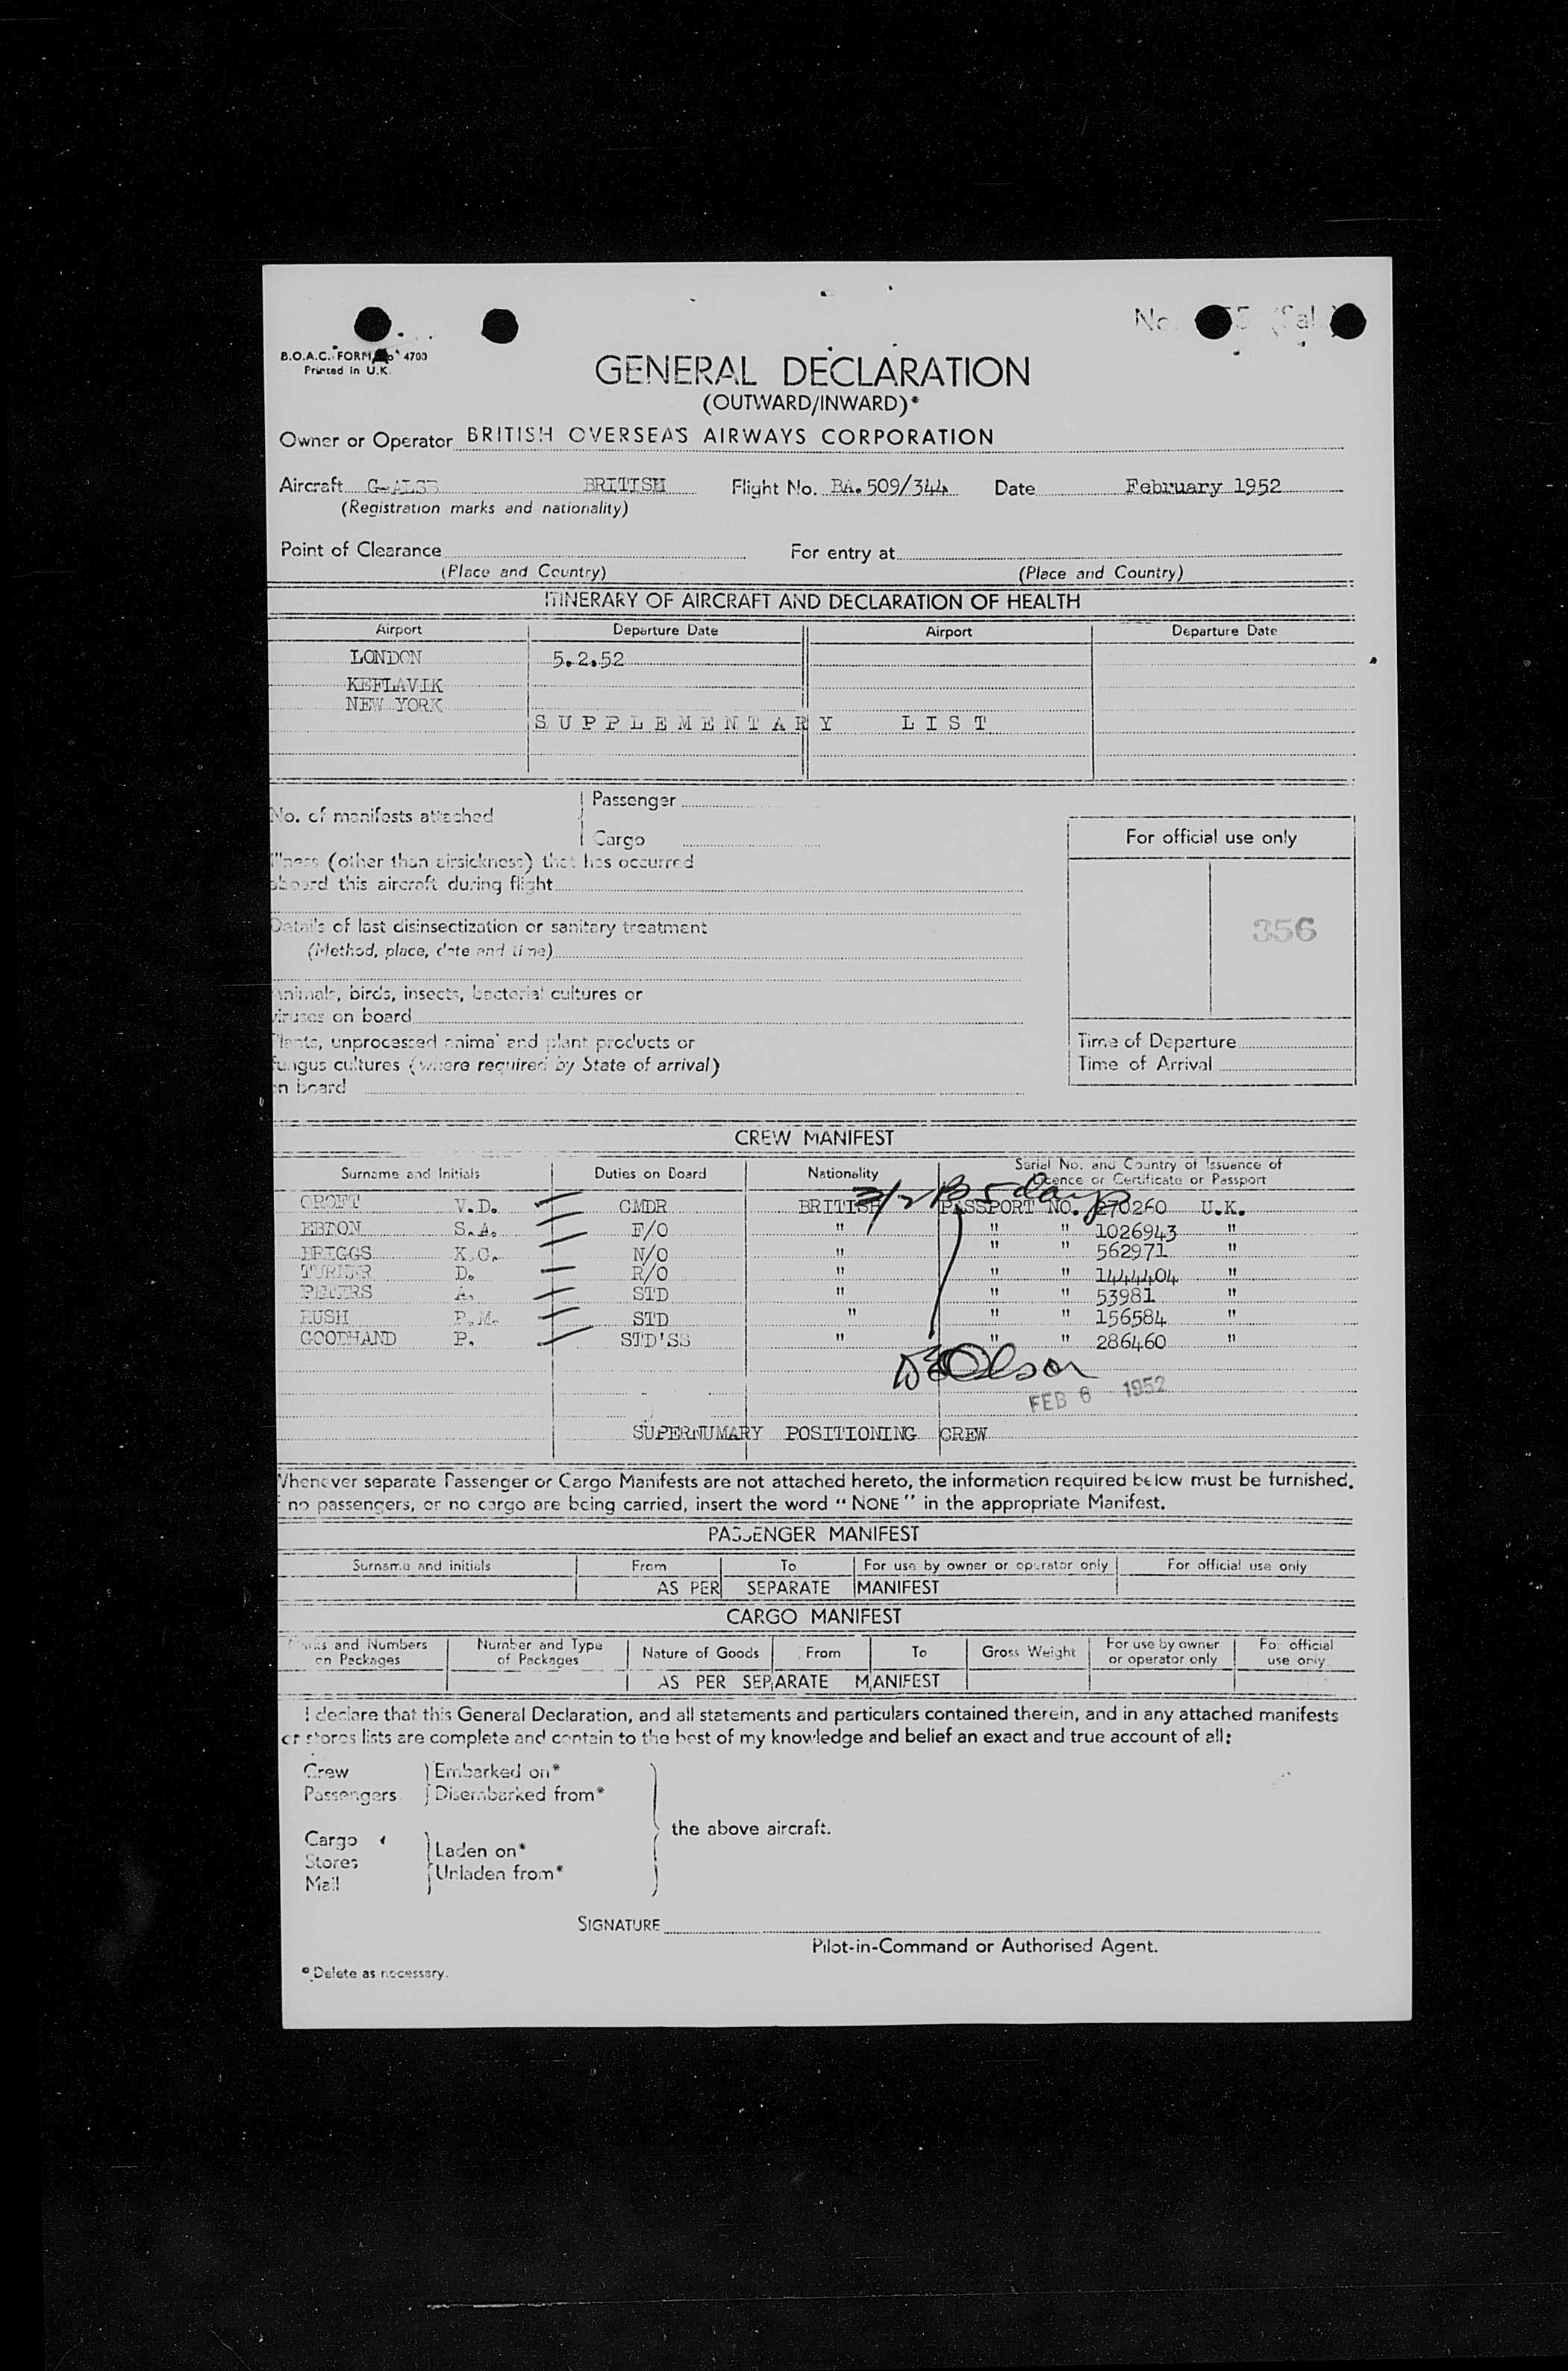 B.O.A.C. FORM No 4700
Printed in U.K.
GENERAL DECLARATION
(OUTWARD/INWARD)*
Owner or Operator BRITISH OVERSEAS AIRWAYS CORPORATION
Aircraft G-ALSB BRITISH Flight No. BA.509/344 Date February 1952
(Registration marks and nationality)
Point of Clearance For entry at
(Place and Country) (Place and Country)
ITINERARY OF AIRCRAFT AND DECLARATION OF HEALTH
Airport Departure Date Airport Departure Date
LONDON 5.2.52
KEFLAVIK
NEW YORK
SUPPLEMENTARY LIST
No. of manifests attached
Passenger
Cargo
Illness (other than airsickness) that has occurred
aboard this aircraft during flight
Details of last disinsectization or sanitary treatment
(Method, place, date and time)
Animals, birds, insects, bacterial cultures or
viruses on board
Plants, unprocessed animal and plant products or
fungus cultures (where required by State of arrival)
on board
For official use only
356
Time of Departure
Time of Arrival
CREW MANIFEST
Surname and Initials Duties on Board Nationality Serial No. and Country of Issuance of
Licence or Certificate or Passport
5 days
CROFT V.D. CMDR BRITISH PASSPORT NO. 270260 U.K.
EBTON S.A. F/O " " " 1026943 "
BRIGGS K.C. N/O " " " 562971 "
TURNER D. R/O " " " 1444404 "
PETERS A. STD " " " 53981 "
RUSH P.M. STD " " " 156584 "
GOODHAND P. STD'SS " " " 286460 "
Olson
FEB 6 1952
SUPERNUMARY POSITIONING CREW
Whenever separate Passenger or Cargo Manifests are not attached hereto, the information required below must be furnished.
If no passengers, or no cargo are being carried, insert the word "NONE" in the appropriate Manifest.
PASSENGER MANIFEST
Surname and initials From To For use by owner or operator only For official use only
AS PER SEPARATE MANIFEST
CARGO MANIFEST
Marks and Numbers on Packages Number and Type of Packages Nature of Goods From To Gross Weight For use by owner or operator only For official use only
AS PER SEPARATE MANIFEST
I declare that this General Declaration, and all statements and particulars contained therein, and in any attached manifests
or stores lists are complete and contain to the best of my knowledge and belief an exact and true account of all:
Crew Embarked on*
Passengers Disembarked from*
the above aircraft.
Cargo
Laden on*
Stores
Unladen from*
Mail
SIGNATURE
Pilot-in-Command or Authorised Agent.
* Delete as necessary.